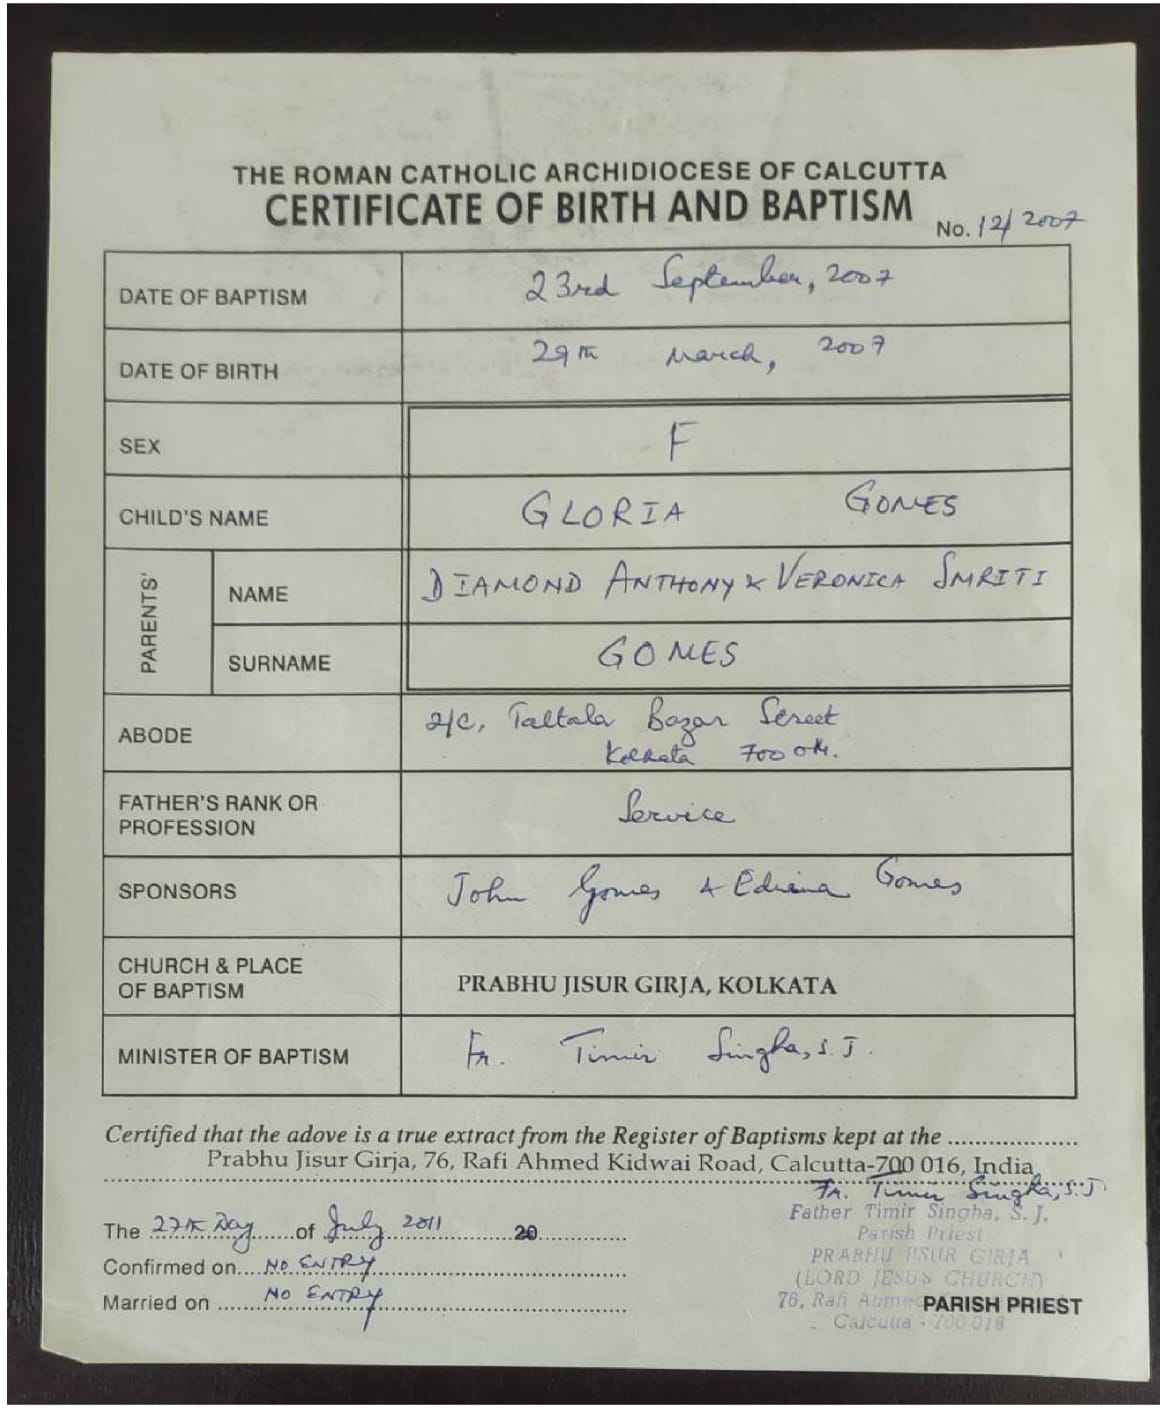 THE ROMAN CATHOLIC ARCHIDIOCESE OF CALCUTTA
CERTIFICATE OF BIRTH AND BAPTISM
No. 12/2007
DATE OF BAPTISM 23rd September, 2007
DATE OF BIRTH 29th March, 2007
SEX F
CHILD'S NAME GLORIA GOMES
PARENTS'
NAME DIAMOND ANTHONY & VERONICA SMRITI
SURNAME GOMES
ABODE 2/C, Taltala Bazar Street
Kolkata
FATHER'S RANK OR
PROFESSION Service
SPONSORS John Gomes & Gomes
CHURCH & PLACE
OF BAPTISM PRABHU JISUR GIRJA, KOLKATA
MINISTER OF BAPTISM Fr. Timir Singha, S.J.
Certified that the adove is a true extract from the Register of Baptisms kept at the ....................
Prabhu Jisur Girja, 76, Rafi Ahmed Kidwai Road, Calcutta-700 016, India
Fr. Timir Singha, S.J
Father Timir Singha, S. J.
Parish Priest
PRABHU JISUR GIRJA
(LORD JESUS CHURCH)
76, Rafi Ahmed
Calcutta - 700 016
PARISH PRIEST
The 27th Day of July 2011 20
Confirmed on NO ENTRY
Married on NO ENTRY